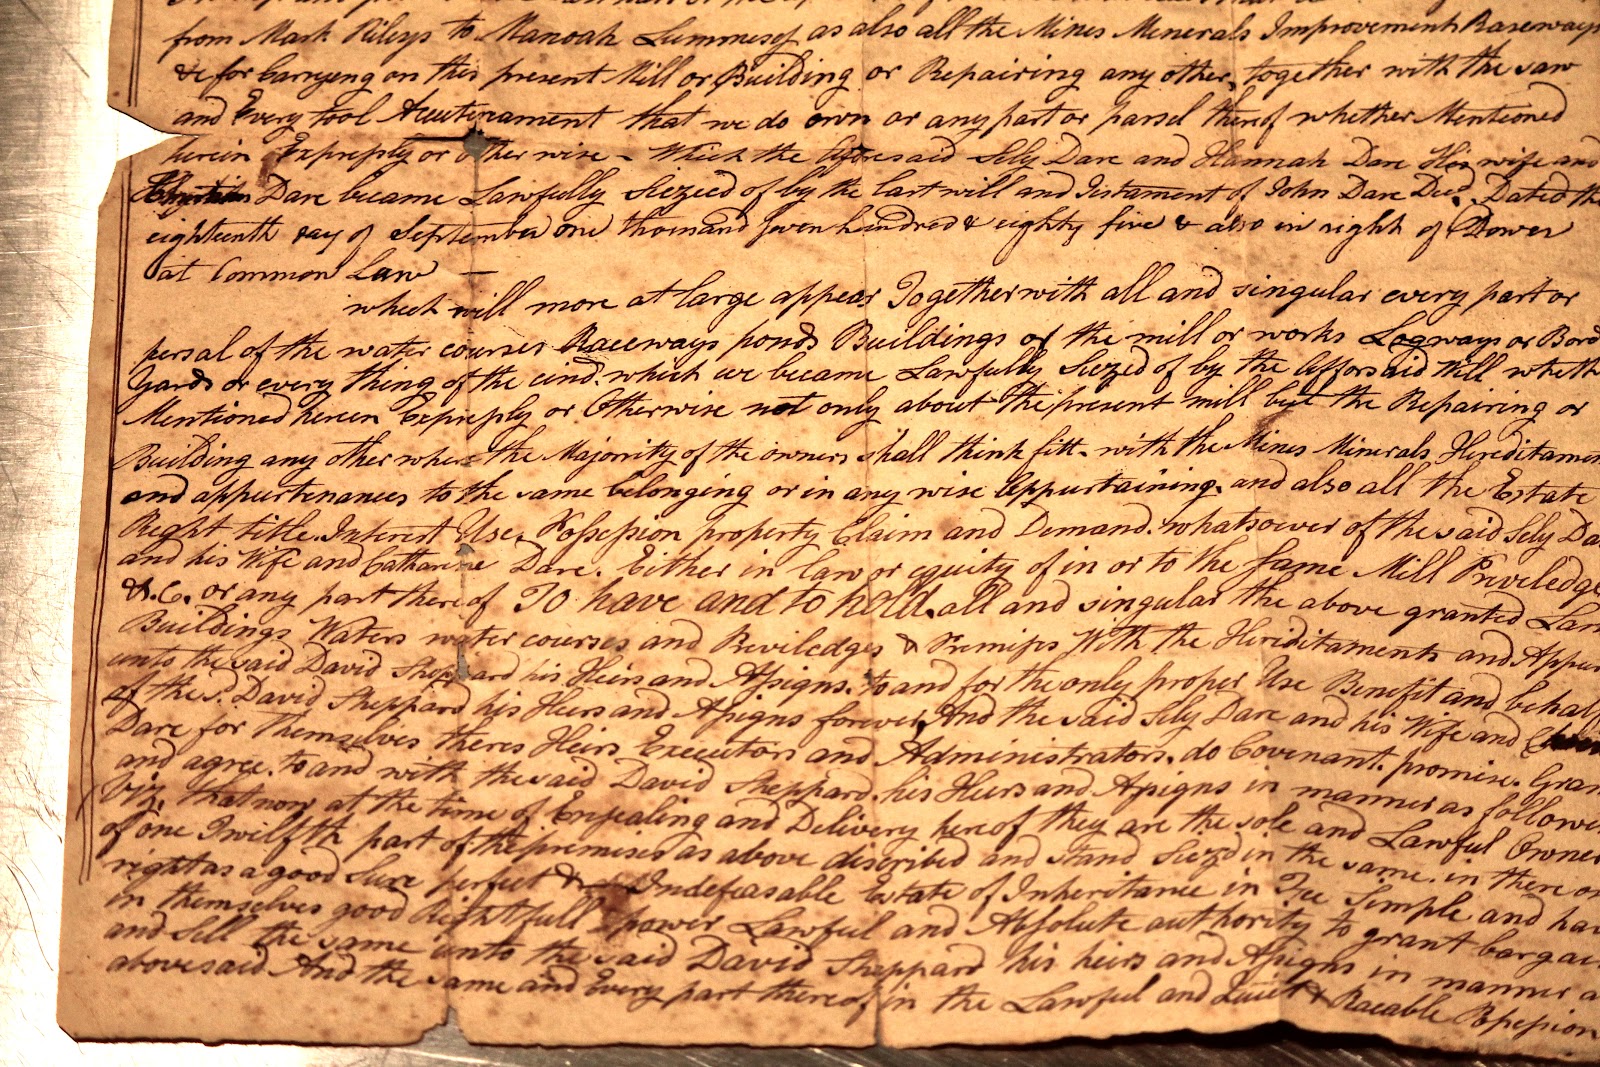 from Mark Rileys to Manoah Lummesy as also all the Mines Minerals Improvement Raseways
&c for Carryeng on this present Mill or Building or Repairing any other, together with the saw
and Every tool Acuterament that we do own or any part or parsel thereof whether Mentioned
herein Expressly or otherwise - Which the Aforesaid Sely Dare and Hannah Dare His wife and
Dare became Lawfully Siezeed of by the last will and Testament of John Dare Decd. Dated the
eighteenth day of September one thousand seven hundred & eighty five & also in right of Dower
at Common Law —
which will more at large appear Together with all and singular every part or
persal of the water courses Raceways ponds Buildings of the mill or works Logways or Bord
Yards or every thing of the cind. which we became Lawfully Siezed of by the Afforsaid Will wheth
Mentioned herein Expressly or Otherwise not only about the present mill but the Repairing or
Building any other where the Majority of the owners shall think fitt - with the Mines Minerals Hereditamen
and appurtenances to the same belonging or in any wise Appurtaining. and also all the Estate
Right title. Interest Use. Possession property Claim and Demand. whatsoever of the said Sely Da
and his Wife and Catharine Dare. Either in law or equity of in or to the same Mill Priveledge
&.C. or any part thereof To have and to hold. all and singular the above granted Lan
Buildings Waters water courses and Priviledges & Premises With the Hereditaments and Appur
unto the said David Sheppard his Heirs and Assigns. to and for the only proper Use Benefit and behalf
of the sd. David Sheppard his Heirs and Assigns forever, And the said Sely Dare and his Wife and
Dare for themselves theres Heirs Executors and Administrators. do Covenant. promise. Gran
and agree. to and with the said David Sheppard. his Heirs and Assigns in manner as followe
Viz. that now at the time of Ensealing and Delivery hereof they are the sole and Lawful Owner
of one Twilfth part of the premises as above discribed and stand Seizd in the same. in there ow
right as a good Sure perfect & Indefeasable Estate of Inheritance in Fee Simple and hav
in themselves good Rightfull power Lawful and Absolute authority to grant bargai
and sell the same unto the said David Sheppard his heirs and Assigns in manner a
abovesaid And the same and Every part thereof in the Lawful and Quiet & Paeable Possession